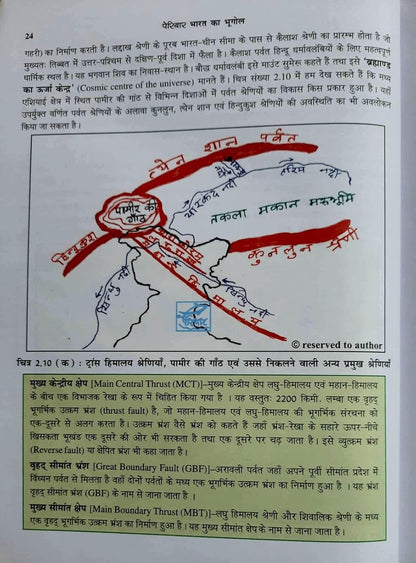 24
पेरियार भारत का भूगोल
गहरी) का निर्माण करती है। लद्दाख श्रेणी के पूरब भारत-चीन सीमा के पास से कैलाश श्रेणी का प्रारम्भ होता है जो
मुख्यतः तिब्बत में उत्तर-पश्चिम से दक्षिण-पूर्व दिशा में फैला है। कैलाश पर्वत हिन्दू धर्मावलंबियों के लिए महत्वपूर्ण
धार्मिक स्थल है। यह भगवान शिव का निवास-स्थान है। बौद्ध धर्मावलंबी इसे माउंट सुमेरू कहते हैं तथा इसे 'ब्रह्माण्ड
का ऊर्जा केन्द्र' (Cosmic centre of the universe) मानते हैं। चित्र संख्या 2.10 में हम देख सकते हैं कि मध्य
एशियाई क्षेत्र में स्थित पामीर की गांठ से विभिन्न दिशाओं में पर्वत श्रेणियों का विकास किस प्रकार हुआ है। यहाँ
उपर्युक्त वर्णित पर्वत श्रेणियों के अलावा कुनलुन, त्येन शान एवं हिन्दुकुश श्रेणियों की अवस्थिति का भी अवलोकन
किया जा सकता है।
त्येन शान पर्वत
तरिम नदी
यारकंद नदी
पामीर की
गाँठ
तकला मकान मरुभूमि
हिन्दुकुश
कुनलुन श्रेणी
सिन्धु नदी
सिन्धु नदी
हिमालय
© reserved to author
चित्र 2.10 (क) : ट्रांस हिमालय श्रेणियाँ, पामीर की गाँठ एवं उससे निकलने वाली अन्य प्रमुख श्रेणियाँ
मुख्य केन्द्रीय क्षेप [Main Central Thrust (MCT)]–मुख्य केन्द्रीय क्षेप लघु-हिमालय एवं महान-हिमालय
के बीच एक विभाजक रेखा के रूप में चिह्नित किया गया है । यह वस्तुतः 2200 किमी. लम्बा एक वृहद्
भूगर्भिक उत्क्रम भ्रंश (thrust fault) है, जो महान-हिमालय एवं लघु-हिमालय की भूगर्भिक संरचना को
एक-दूसरे से अलग करता है। उत्क्रम भ्रंश वैसे भ्रंश को कहते हैं जहाँ भ्रंश-रेखा के सहारे ऊपर-नीचे
खिसकता भूखंड एक दूसरे की ओर भी सरकता है तथा एक दूसरे पर चढ़ जाता है। इसे व्युत्क्रम भ्रंश
(Reverse fault) या क्षेपित भ्रंश भी कहा जाता है।
वृहद् सीमांत भ्रंश [Great Boundary Fault (GBF)]–अरावली पर्वत जहाँ अपने पूर्वी सीमांत प्रदेश में
विंध्यन पर्वत से मिलता है वहाँ दोनों पर्वतों के मध्य एक भूगर्भिक उत्क्रम भ्रंश का निर्माण हुआ है । यह भ्रंश
वृहद् सीमांत भ्रंश (GBF) के नाम से जाना जाता है ।
मुख्य सीमांत क्षेप [Main Boundary Thrust (MBT)]–लघु हिमालय श्रेणी और शिवालिक श्रेणी के मध्य
एक वृहद् भूगर्भिक उत्क्रम भ्रंश का निर्माण हुआ है। यह मुख्य सीमांत क्षेप के नाम से जाना जाता है।